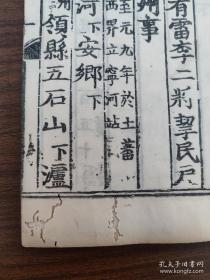 有雷李二挈民
州事
至元九年於土蕃
西界立寧河站
河下安鄉下
領縣五石山下瀘
孔子旧书网